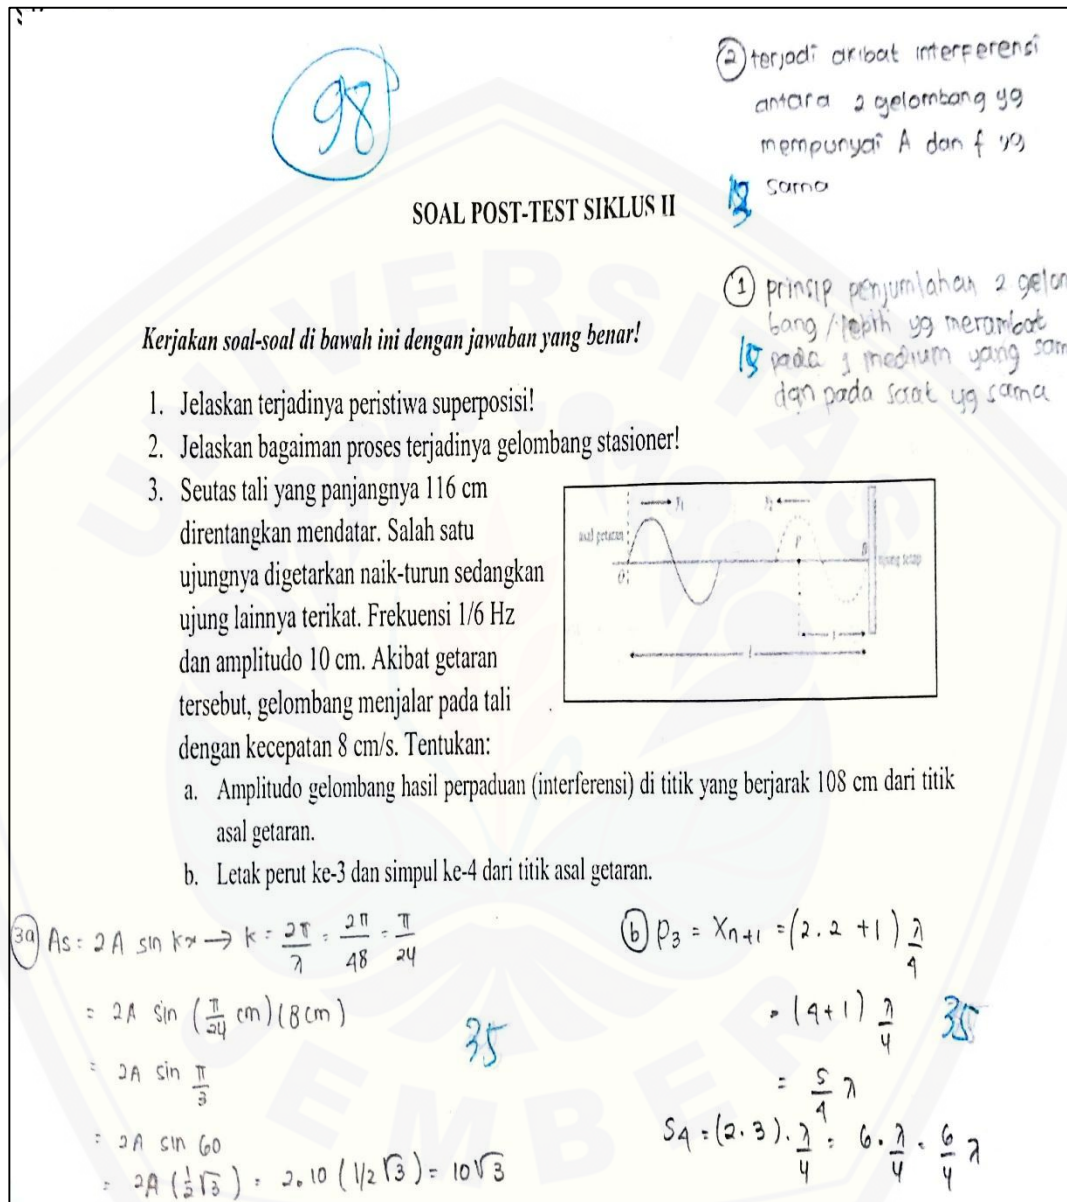 98
② terjadi akibat interferensi
antara 2 gelombang yg
mempunyai A dan f yg
sama
SOAL POST-TEST SIKLUS II
① prinsip penjumlahan 2 gelom
bang / lebih yg merambat
15 pada 1 medium yang sam
dan pada saat yg sama
Kerjakan soal-soal di bawah ini dengan jawaban yang benar!
1. Jelaskan terjadinya peristiwa superposisi!
2. Jelaskan bagaiman proses terjadinya gelombang stasioner!
3. Seutas tali yang panjangnya 116 cm
direntangkan mendatar. Salah satu
ujungnya digetarkan naik-turun sedangkan
ujung lainnya terikat. Frekuensi 1/6 Hz
dan amplitudo 10 cm. Akibat getaran
tersebut, gelombang menjalar pada tali
dengan kecepatan 8 cm/s. Tentukan:
y₁ y₂
asal getaran P B ujung tetap
O
l
a. Amplitudo gelombang hasil perpaduan (interferensi) di titik yang berjarak 108 cm dari titik
asal getaran.
b. Letak perut ke-3 dan simpul ke-4 dari titik asal getaran.
3a As = 2A sin kx → k = 2π/λ = 2π/48 = π/24
= 2A sin (π/24 cm) (8 cm)
= 2A sin π/3
= 2A sin 60
= 2A (1/2 √3) = 2.10 (1/2 √3) = 10√3
35
ⓑ P₃ = Xₙ₊₁ = (2.2 + 1) λ/4
= (4+1) λ/4
35
= 5/4 λ
S4 = (2.3) . λ/4 = 6 . λ/4 = 6/4 λ
UNIVERSITAS
JEMBER